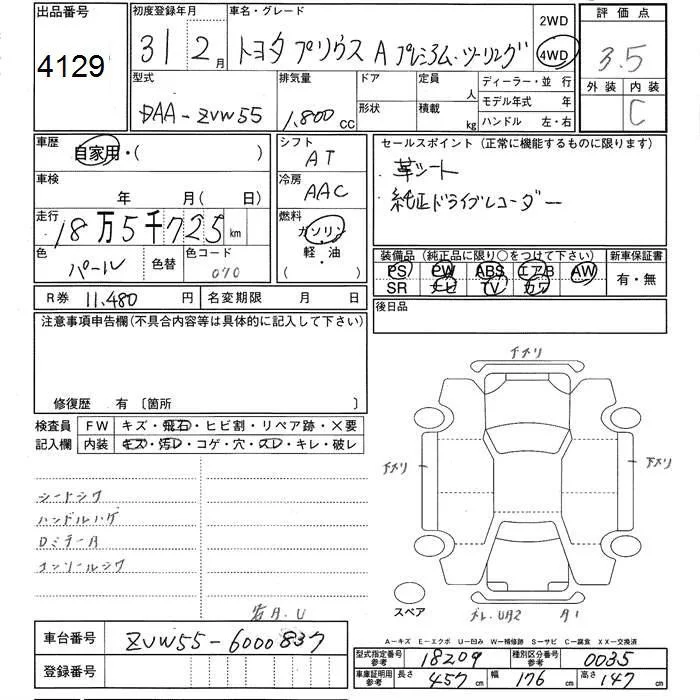 出品番号
4129
初度登録年月
31 2月
車名・グレード
トヨタ プリウス A プレミアム・ツーリング
2WD
4WD
評価点
3.5
外装 内装
C
型式
DAA-ZVW55
排気量
1,800 CC
ドア
形状
定員 人
積載 kg
ディーラー・並行
モデル年式 年
ハンドル 左・右
車歴
自家用・( )
シフト
AT
セールスポイント(正常に機能するものに限ります)
革シート
純正ドライブレコーダー
車検
年 月( 日)
冷房
AAC
走行
18万5千725km
燃料
ガソリン
・
軽・油
( )
色
パール
色替
色コード
070
装備品(純正品に限り○をつけて下さい)
PS PW ABS エアB AW
SR ナビ TV カワ
新車保証書
有・無
R券 11,480 円
名変期限 月 日
後日品
注意事項申告欄(不具合内容等は具体的に記入して下さい)
修復歴 有〔箇所 〕
検査員
記入欄
FW キズ・飛石・ヒビ割・リペア跡・X要
内装 キズ・汚レ・コゲ・穴・スレ・キレ・破レ
シートシワ
ハンドルハゲ
コンソールシワ
下メリ
下メリ
下メリ
スペア
A-キズ E-エクボ U-凹み W-補修跡 S-サビ C-腐食 XX-交換済
車台番号 ZVW55-6000837
登録番号
型式指定番号
参考
18209
種別区分番号
参考
0035
車庫証明用
参考
長さ 457cm 幅 176cm 高さ 147cm